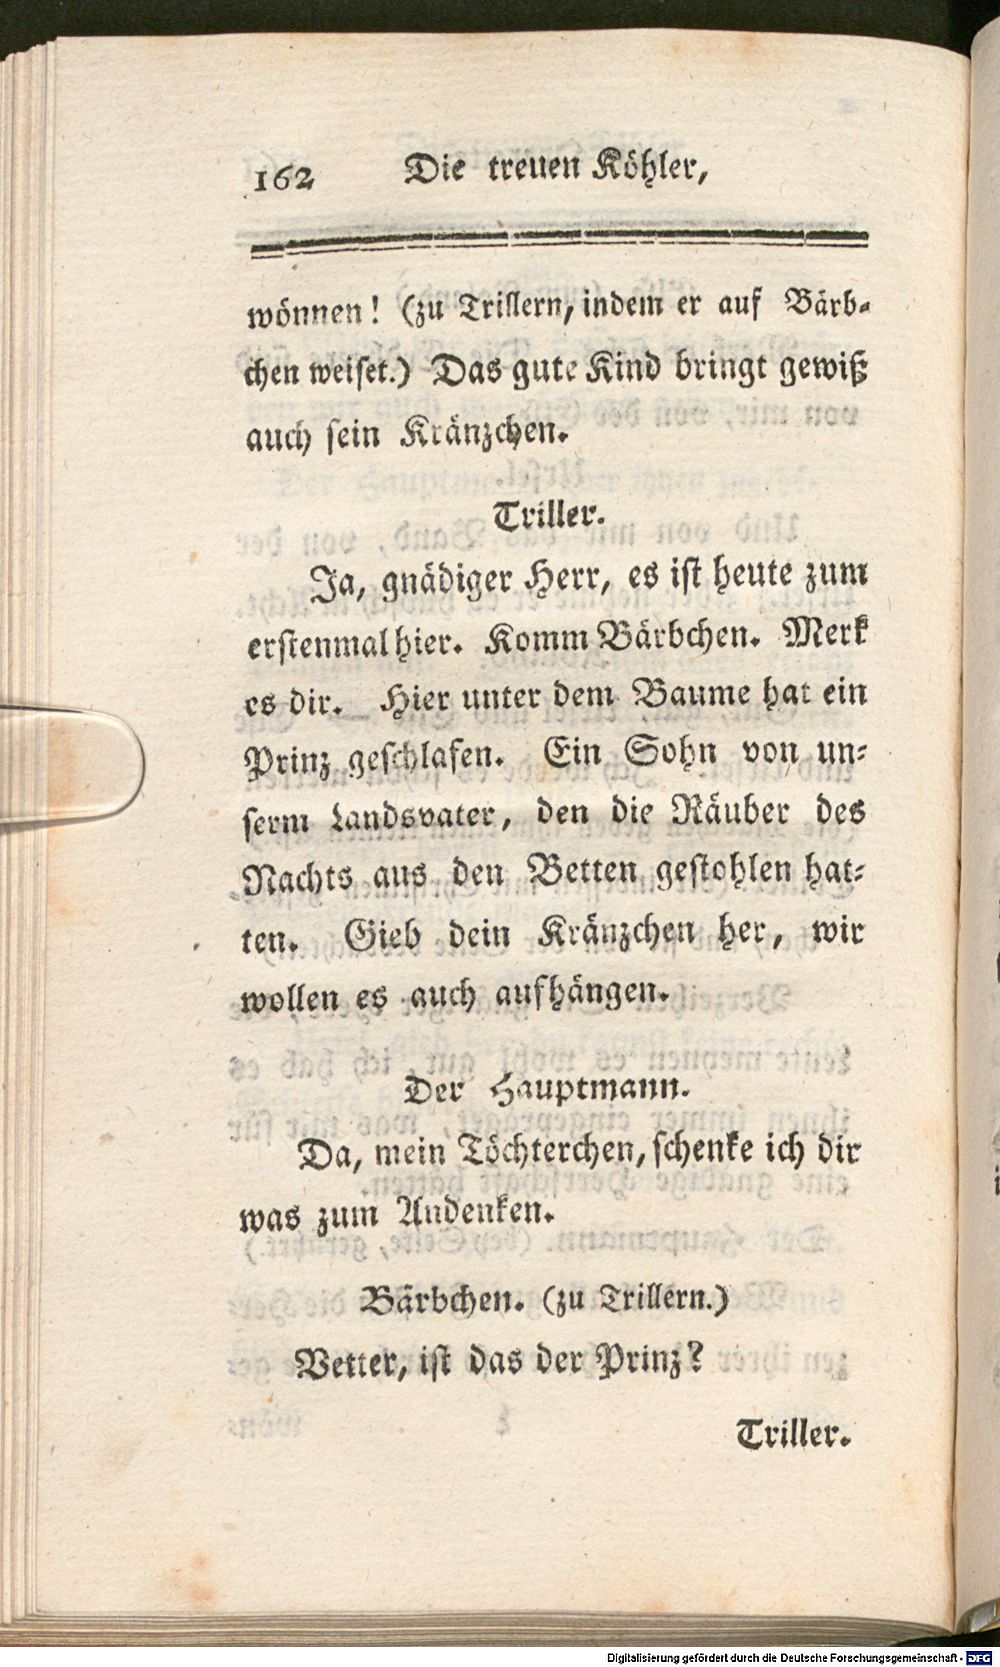 162 Die treuen Köhler,
wönnen! (zu Trillern, indem er auf Bärb-
chen weiset.) Das gute Kind bringt gewiß
auch sein Kränzchen.
Triller.
Ja, gnädiger Herr, es ist heute zum
erstenmal hier. Komm Bärbchen. Merk
es dir. Hier unter dem Baume hat ein
Prinz geschlafen. Ein Sohn von un-
serm Landsvater, den die Räuber des
Nachts aus den Betten gestohlen hat-
ten. Gieb dein Kränzchen her, wir
wollen es auch aufhängen.
Der Hauptmann.
Da, mein Töchterchen, schenke ich dir
was zum Andenken.
Bärbchen. (zu Trillern.)
Vetter, ist das der Prinz?
Triller.
Digitalisierung gefördert durch die Deutsche Forschungsgemeinschaft - DFG